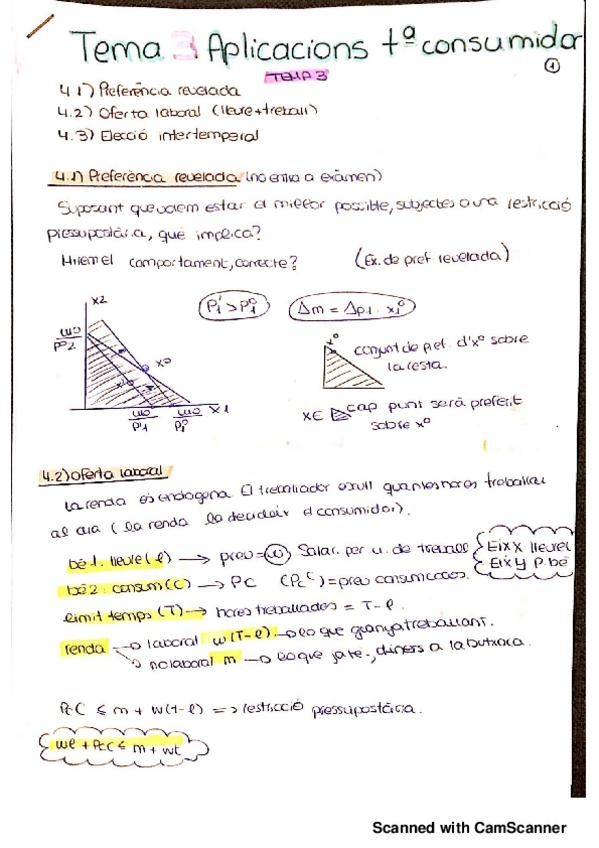 Tema 3 Aplicacions tª consumidor
TEMA 3
1
4.1) Preferència revelada
4.2) Oferta laboral (lleure+treball)
4.3) Elecció intertemporal
4.1) Preferència revelada (no entra a exàmen)
Suposant que volem estar el millor possible, subjectes a una restricció
pressupostària, què implica?
Hi ha el comportament, correcte? (Ex. de pref revelada)
X2
P'1 > Pº1
Δm = Δp1 · x1º
conjunt de pref. d'xº sobre
la resta.
xº
X1
X ∈ cap punt serà preferit
sobre xº
4.2) Oferta laboral
La renda és endògena. El treballador escull quantes hores treballar
al dia (la renda la decideix el consumidor).
bé 1: lleure (l) → preu = w Salar. per u. de treball
Eix X lleure
Eix Y p. bé
bé 2: consum (C) → PC (Pc C) = preu consum
límit temps (T) → hores treballades = T - l.
renda → laboral w(T-l) → lo que guanya treballant.
→ no laboral m → lo que ja té, diners a la butxaca.
PcC ≤ m + w(T-l) => restricció pressupostària.
wl + PcC ≤ m + wt
Scanned with CamScanner